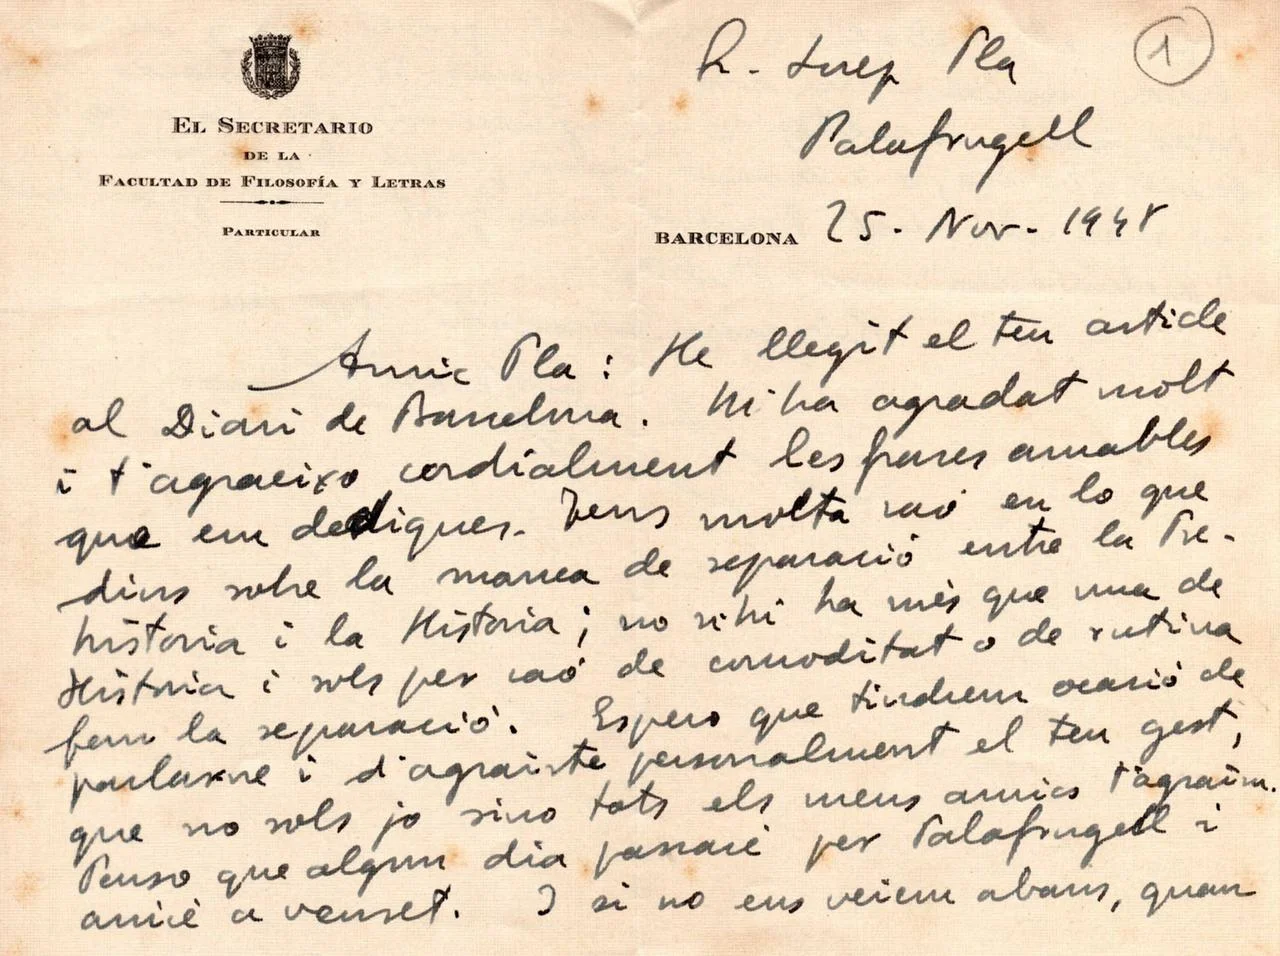 EL SECRETARIO
DE LA
FACULTAD DE FILOSOFÍA Y LETRAS
PARTICULAR
Josep Pla
1
Palafrugell
BARCELONA 25 - Nov - 1948
Amic Pla: He llegit el teu article
al Diari de Barcelona. M'ha agradat molt
i t'agraeixo cordialment les frases amables
que em dediques. Tens molta raó en lo que
dius sobre la manca de separació entre la Pre-
història i la Història; no hi ha més que una de
Història i sols per raó de comoditat o de rutina
fem la separació. Espero que tindrem ocasió de
parlarne i d'agrairte personalment el teu gest,
que no sols jo sino tots els meus amics t'agraïm.
Penso que algun dia passaré per Palafrugell i
aniré a veuret. I si no ens veiem abans, quan